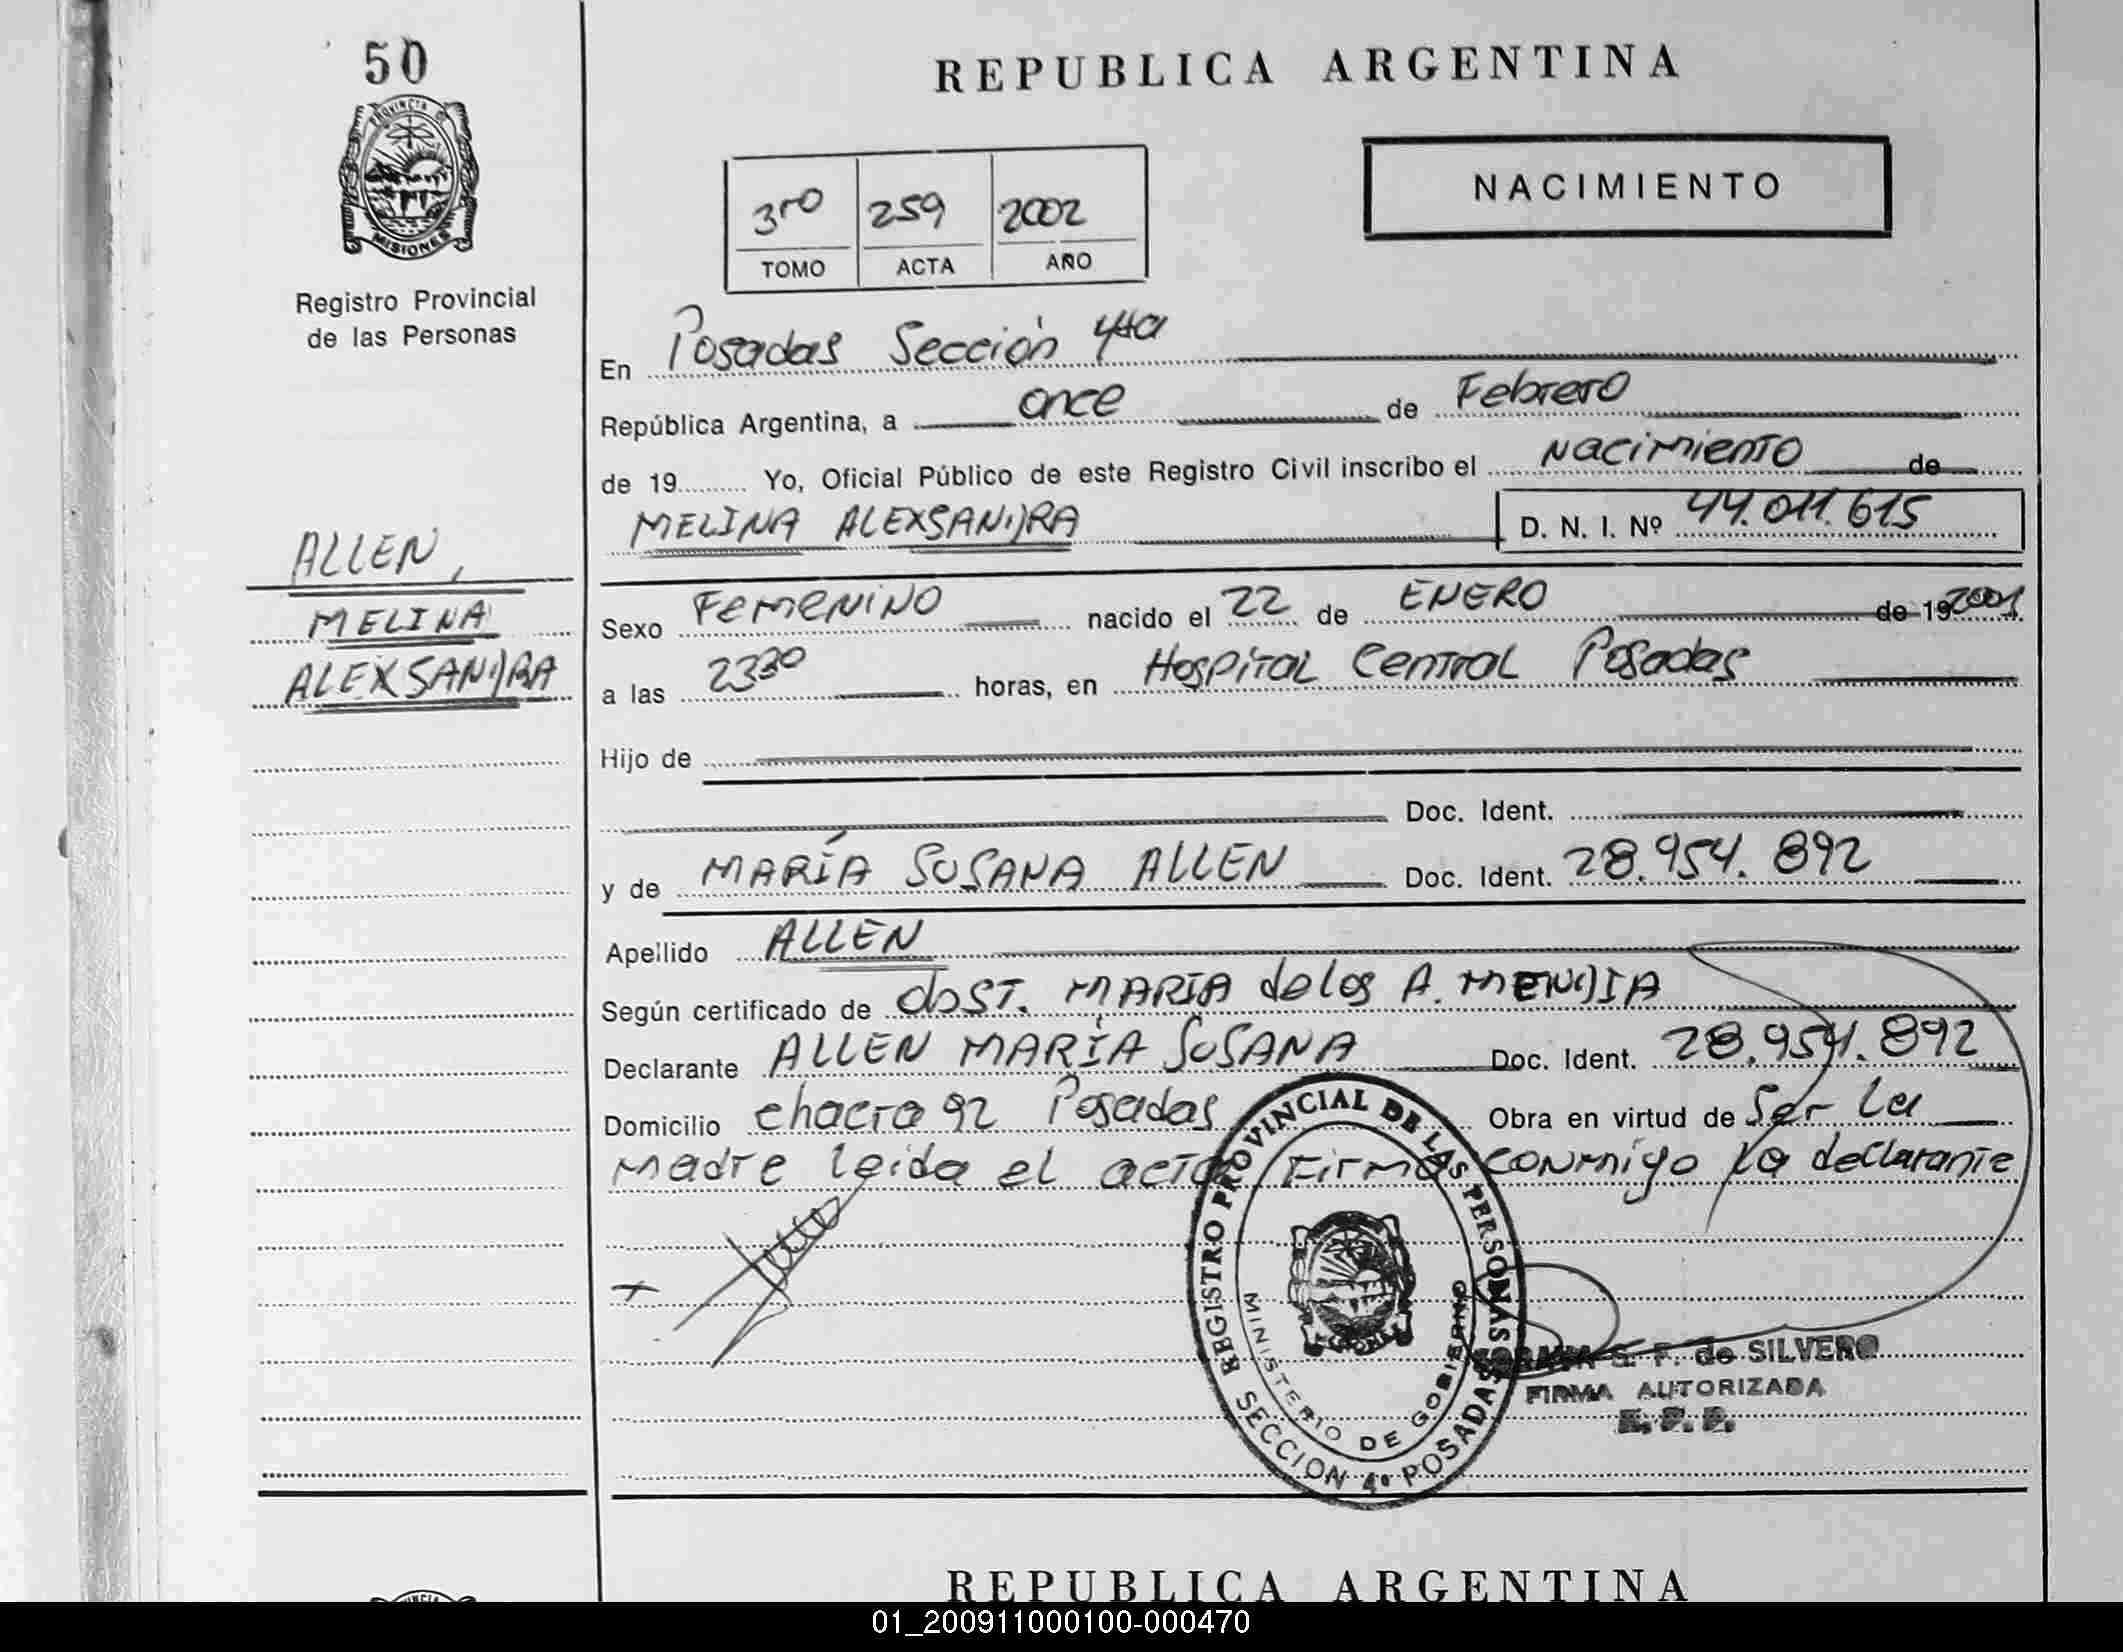 50
PROVINCIA DE
MISIONES
Registro Provincial
de las Personas
REPUBLICA ARGENTINA
3ro 259 2002
TOMO ACTA AÑO
NACIMIENTO
En Posadas Sección 4ta
República Argentina, a once de Febrero
de 19 Yo, Oficial Público de este Registro Civil inscribo el Nacimiento de
MELINA ALEXSANDRA D. N. I. Nº 44.011.615
ALLEN,
MELINA
ALEXSANDRA
Sexo Femenino nacido el 22 de ENERO de 19 2001
a las 2330 horas, en Hospital Central Posadas
Hijo de
Doc. Ident.
y de MARÍA SUSANA ALLEN Doc. Ident. 28.954.892
Apellido ALLEN
Según certificado de obST. MARÍA de los A. MENDIA
Declarante ALLEN MARÍA SUSANA Doc. Ident. 28.954.892
Domicilio chacra 92 Posadas Obra en virtud de Ser La
Madre leida el acta Firma conmigo La declarante
REGISTRO PROVINCIAL DE LAS PERSONAS
MINISTERIO DE GOBIERNO
SECCION 4ª POSADAS
S. F. de SILVERO
FIRMA AUTORIZADA
REPUBLICA ARGENTINA
01_200911000100-000470